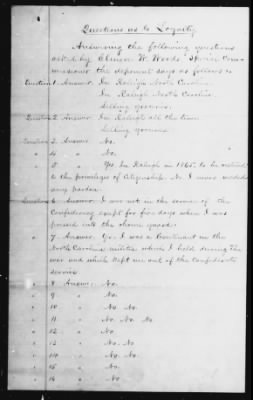 Questions as to Loyalty
Answering the following questions
asked by Ebenezer W. Woods Special Com-
missioner the deponent says as follows to
Question 1 Answer. In Raleigh North Carolina.
In Raleigh North Carolina
Selling groceries.
Question 2 Answer In Raleigh all the time
Selling groceries
Question 3 Answer No.
" 4 " No.
" 5 " Yes. In Raleigh in 1865. to be restored
to the privileges of Citizenship. No. I never needed
any pardon.
Question 6 Answer. I was not in the service of the
Confederacy except for five days when I was
pressed into the home guard.
" 7 Answer. Yes. I was a lieutenant in the
North Carolina militia which I held during the
war and which kept me out of the Confederate
service
" 8 Answer. No.
" 9 " No.
" 10 " No. No.
" 11 " No. No. No
" 12 " No
" 13 " No. No
" 14 " No. No.
" 15 " No.
" 16 " No